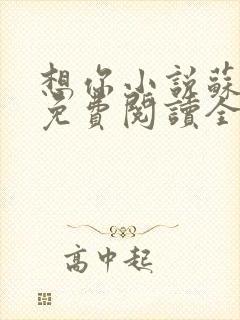 想你小説蘇
免費閱讀全
高中起